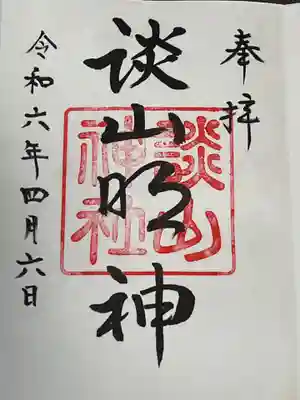 奉拝
談山明神
談山神社
令和六年四月六日